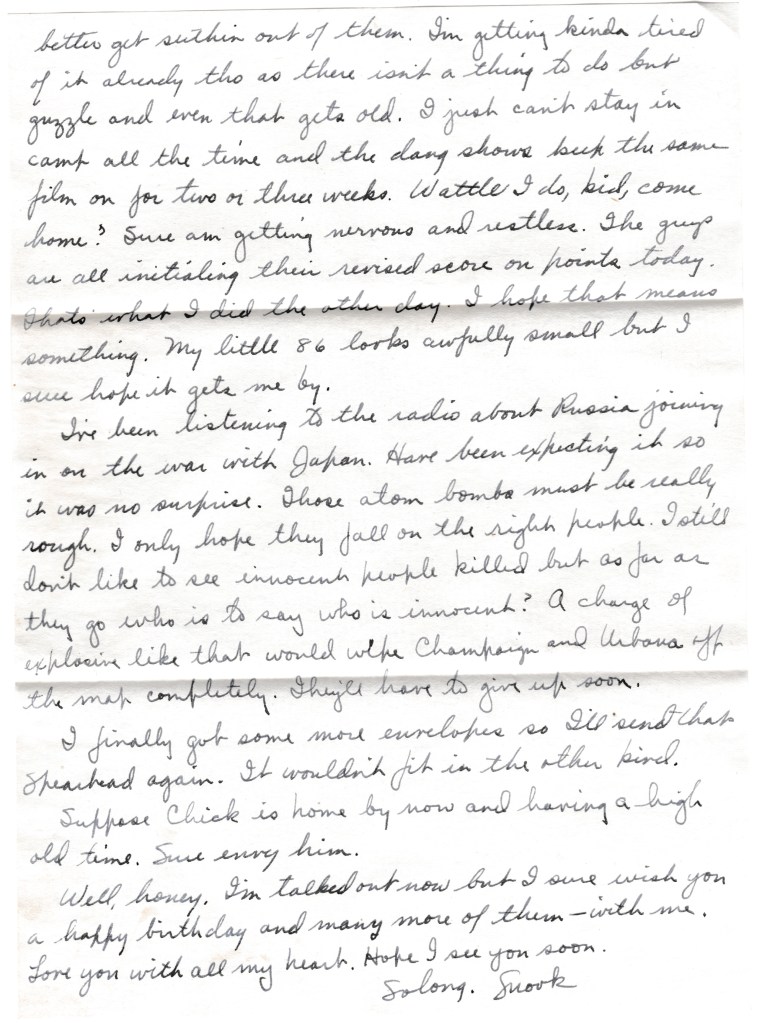 better get suthin out of them. I'm getting kinda tired
of it already tho as there isn't a thing to do but
guzzle and even that gets old. I just can't stay in
camp all the time and the dang shows keep the same
film on for two or three weeks. Wattle I do, kid, come
home? Sure am getting nervous and restless. The guys
are all initialing their revised score on points today.
Thats what I did the other day. I hope that means
something. My little 86 looks awfully small but I
sure hope it gets me by.
I've been listening to the radio about Russia joining
in on the war with Japan. Have been expecting it so
it was no surprise. Those atom bombs must be really
rough. I only hope they fall on the right people. I still
don't like to see innocent people killed but as far as
they go who is to say who is innocent? A charge of
explosive like that would wipe Champaign and Urbana off
the map completely. They'll have to give up soon.
I finally got some more envelopes so I'll send that
Spearhead again. It wouldn't fit in the other kind.
Suppose Chick is home by now and having a high
old time. Sure envy him.
Well, honey, I'm talked out now but I sure wish you
a happy birthday and many more of them – with me.
Love you with all my heart. Hope I see you soon.
Solong. Snook